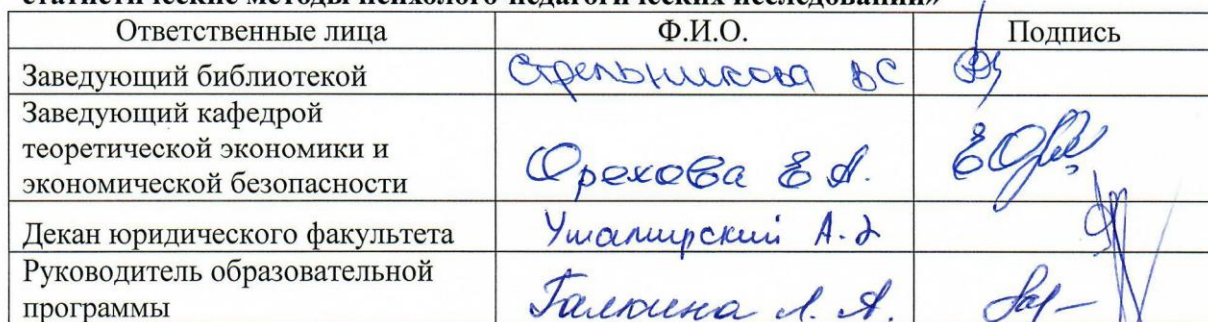 статистические методы психолого-педагогических исследований»
Ответственные лица Ф.И.О. Подпись
Заведующий библиотекой Стрельникова ВС
Заведующий кафедрой
теоретической экономики и
экономической безопасности Орехова Е А.
Декан юридического факультета
Руководитель образовательной
программы Галкина Л. А.